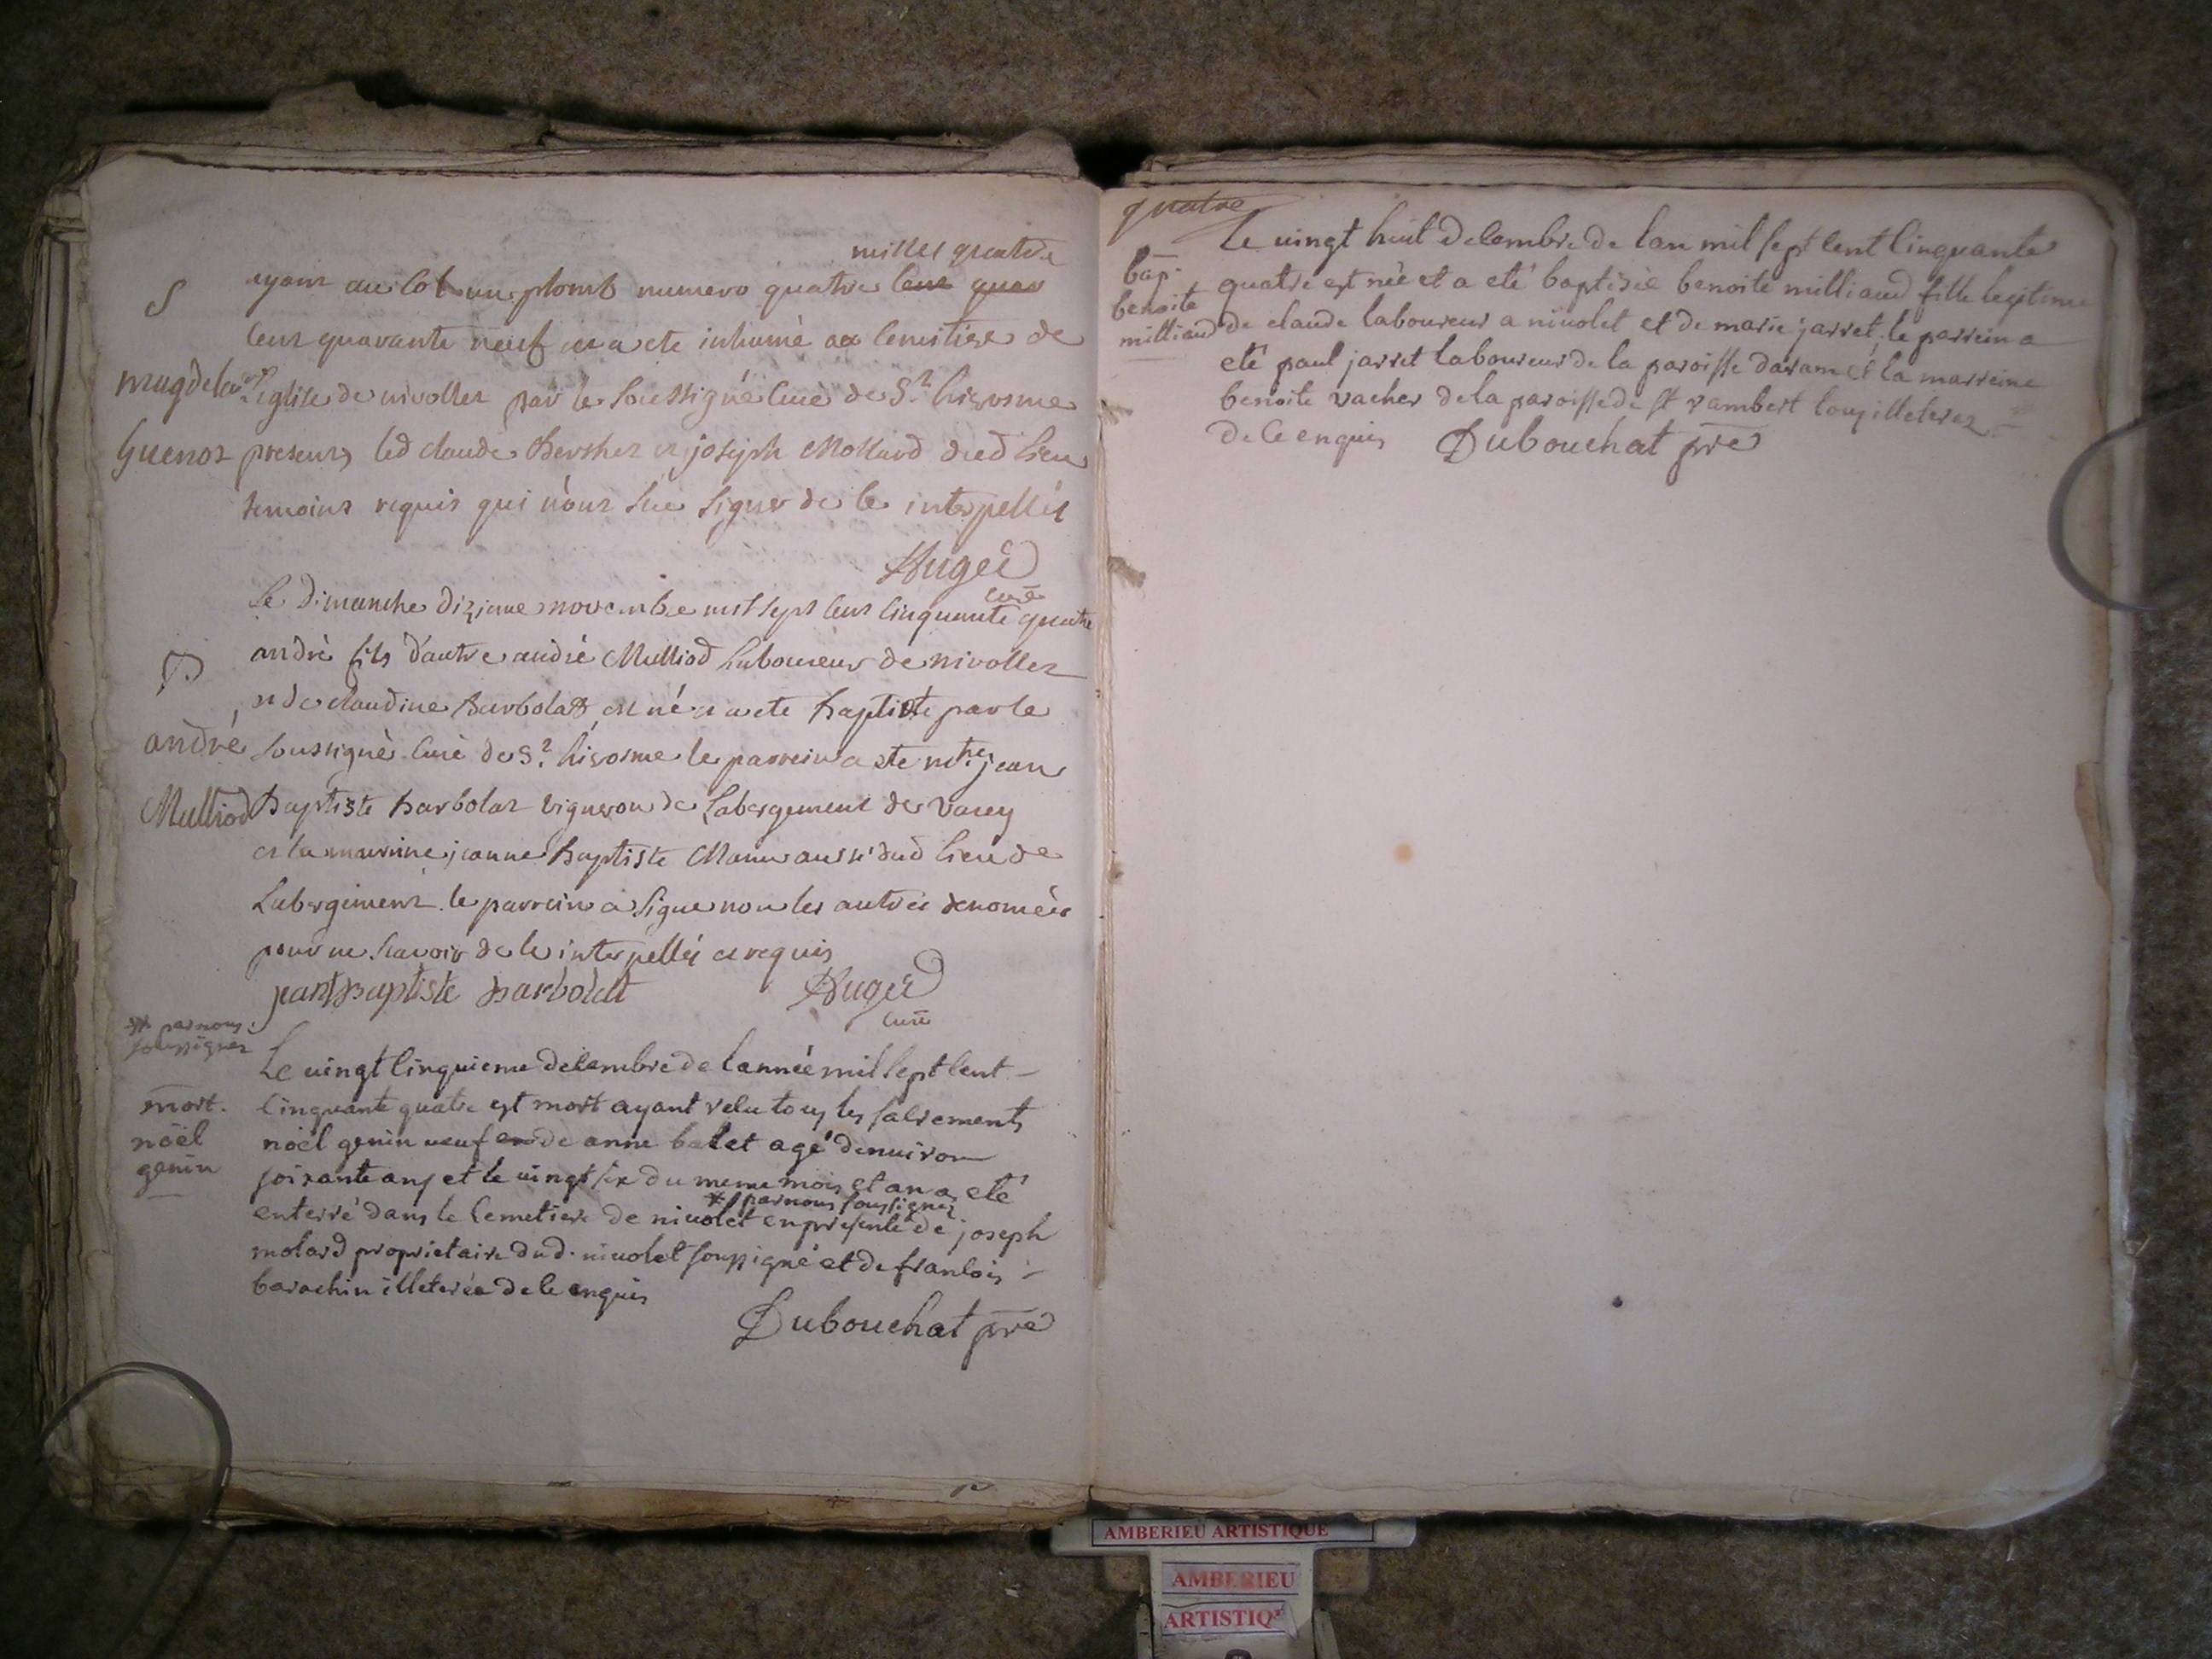 milles quatre
ayant au col un plomb numero quatre cent quar
S
cent quarante neuf et a ete inhumé au cemitiere de
magdelen
l'eglise de nivollet par le soussigné curé de St hierosme
Guenot
presents led claude et joseph Mollard dud lieu
temoins requis qui n'ont sceu signer de ce interpellés
Auger
curé
Le dimanche dixieme novembre mil sept cent cinquante quatre
B
andré fils d'autre andré Milliod laboureur de nivollet
et de claudine barbolat est né et a ete baptisé par le
andré
soussigné curé de St hierosme le parrein a ete mtre jean
Milliod
baptiste barbolat vigneron de Labergement de varey
et la marrine jeanne baptiste aussi dud lieu de
Labergement le parrein a signé non les autres denomées
pour ne scavoir de ce interpellés et requis
jean baptiste barbolat Auger
curé
* par nous
soussigner
Le vingt cinquieme decembre de l'année mil sept cent
mort.
noël
genin
cinquante quatre est mort ayant recu tous les sacrements
noël genin veuf de anne balet agé denuiron
soixante ans et le vingt six du meme mois et an a eté
* par nous soussigner
enterré dans le cemetiere de niuolet en presence de joseph
molard proprietaire dud. niuolet soussigné et de francois
barachin illeterée de ce enquis
Dubouchat pre
quatre
bap.
benoite
milliaud
Le vingt huit decembre de lan mil sept cent cinquante
quatre est née et a eté baptisée benoite milliaud fille legitime
de claude laboureur a niuolet et de marie jarret, le parrein a
eté paul jarret laboureur de la paroisse daram et la marreine
benoite vacher de la paroisse de st rambert tous illeterez
de ce enquis Dubouchat pre
AMBERIEU ARTISTIQUE
AMBERIEU
ARTISTIQ